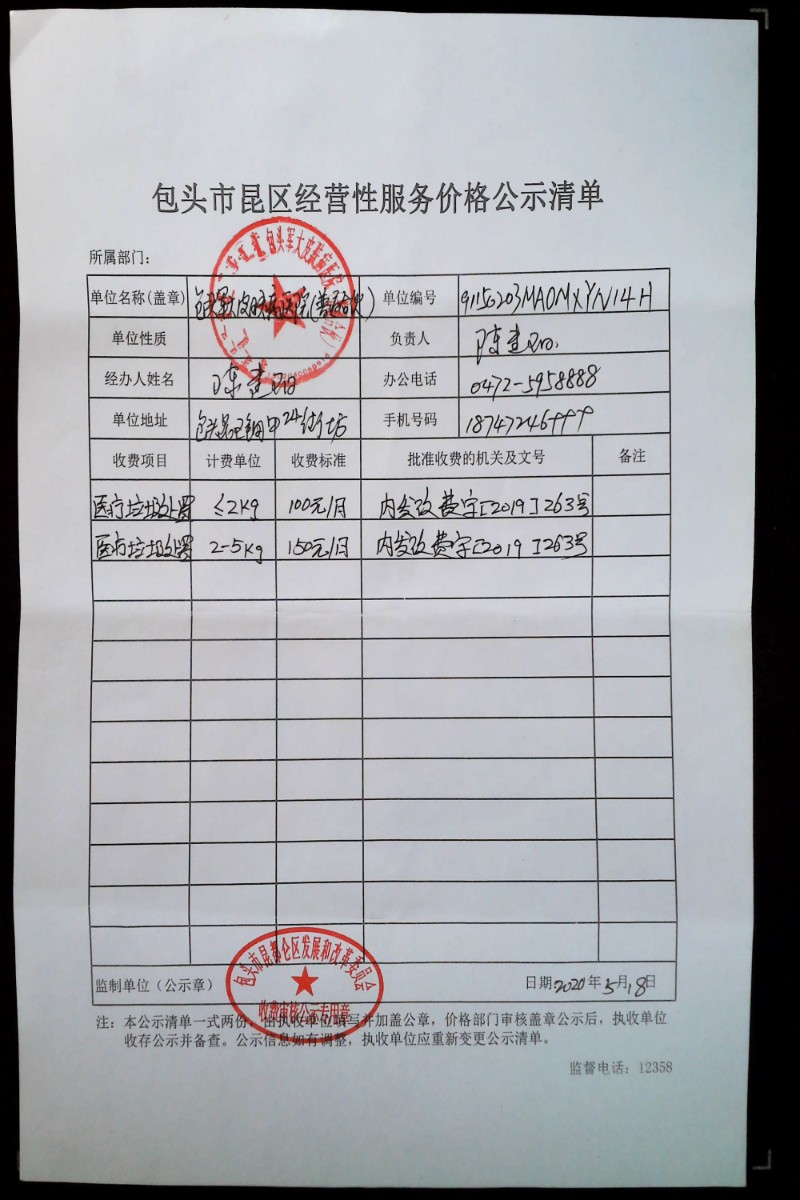 包头市昆区经营性服务价格公示清单
所属部门：
单位名称(盖章) 包头军大皮肤病医院(普通合伙) 单位编号 91150203MA0MXYN14H
单位性质 负责人 陈
经办人姓名 陈 办公电话 0472-5958888
单位地址 手机号码
收费项目 计费单位 收费标准 批准收费的机关及文号 备注
医疗垃圾处置 ≤2kg 100元/月 内发改费字[2019]263号
医疗垃圾处置 2-5kg 150元/月 内发改费字[2019]263号
包头市昆都仑区发展和改革委员会
收费审核公示专用章
监制单位（公示章） 日期2020年5月18日
注：本公示清单一式两份，由执收单位填写并加盖公章，价格部门审核盖章公示后，执收单位
收存公示并备查。公示信息如有调整，执收单位应重新变更公示清单。
监督电话：12358